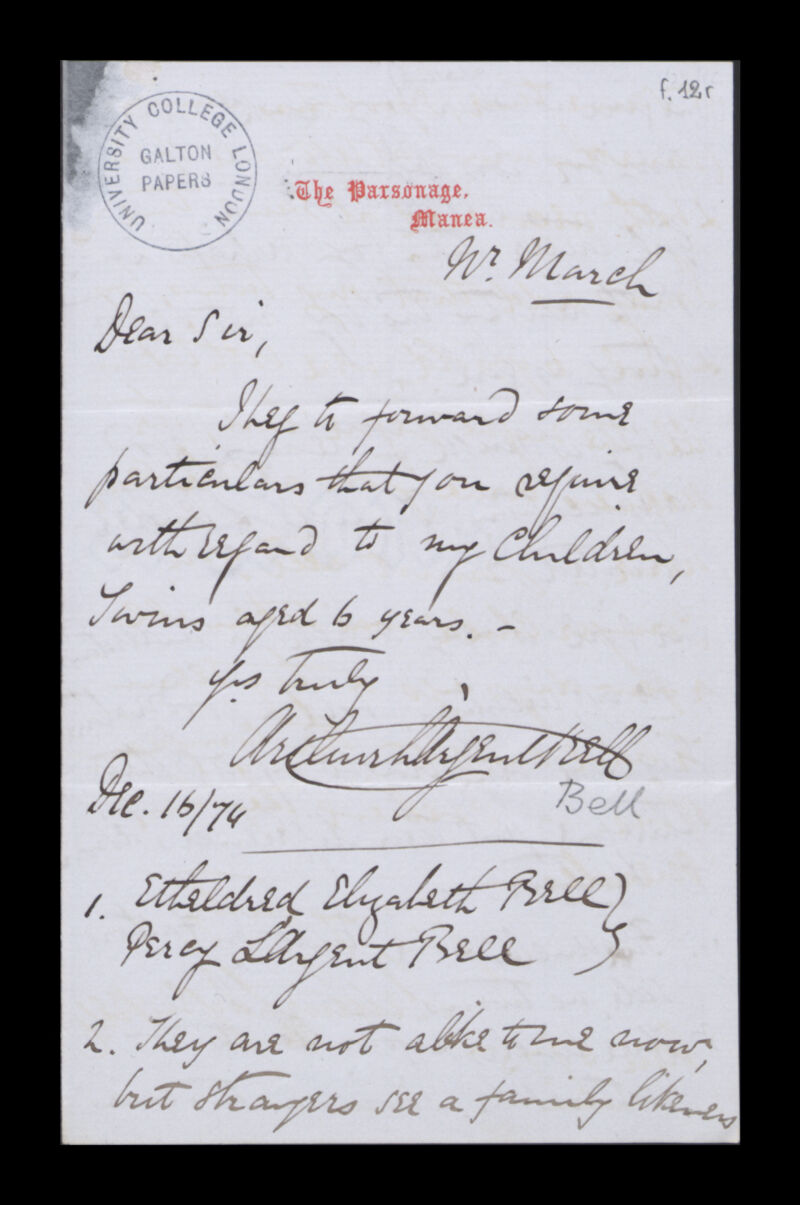 f.12r
UNIVERSITY COLLEGE LONDON
GALTON
PAPERS
The Parsonage,
Manea.
Nr. March
Dear Sir,
I beg to forward some
particulars that you require
with regard to my Children,
Twins aged 6 years. -
Yrs truly
Arthur L'Argent Bell
Bell
Dec. 16/74
1. Etheldred Elizabeth Bell }
Percy L'Argent Bell
2. They are not alike to me now,
but strangers see a family likeness